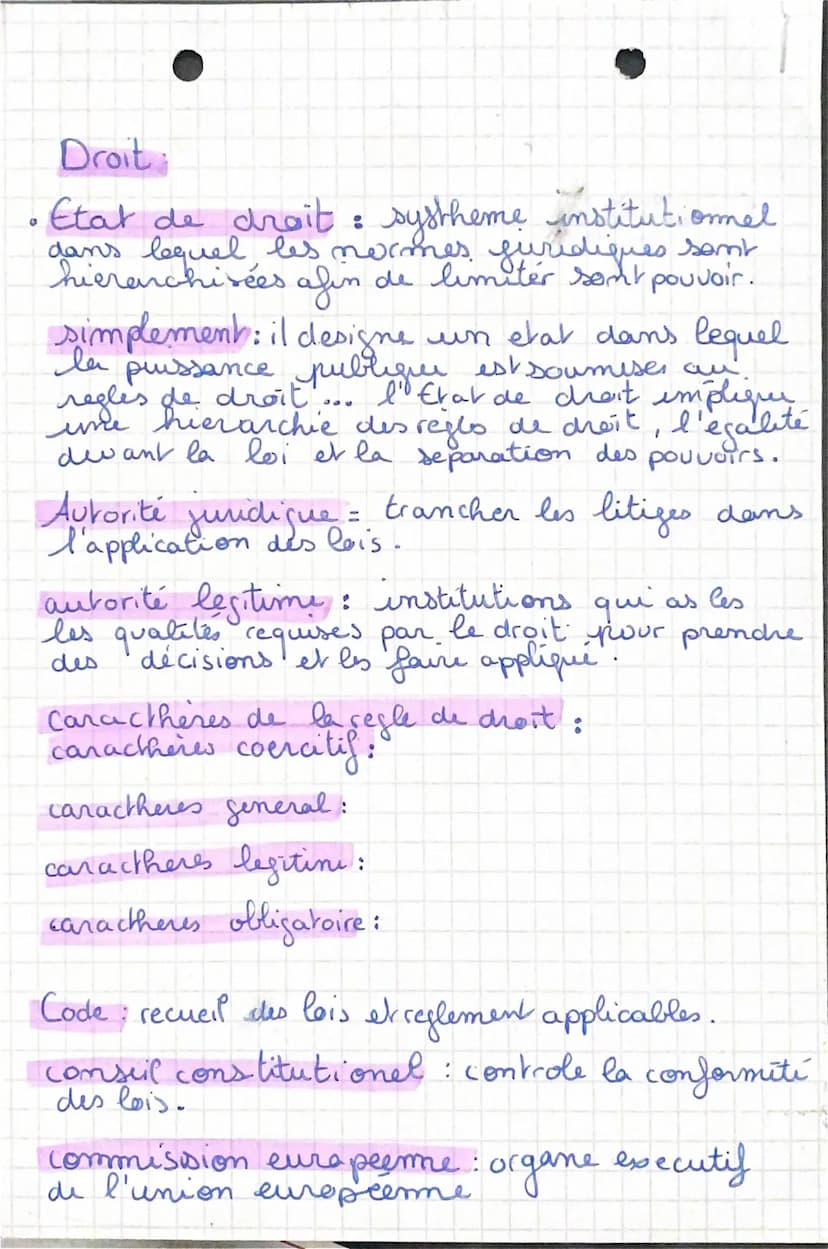 Droit :
• Etat de droit : systheme institutionnel
dans lequel les normes juridiques sont
hierarchisées afin de limiter sont pouvoir.
simplement : il designe un etat dans lequel
la puissance publique est soumises au
regles de droit ... l'Etat de droit implique
une hierarchie des règls de droit, l'égalité
devant la loi et la séparation des pouvoirs.
Autorité juridique = trancher les litiges dans
l'application des lois.
autorité legitime : institutions qui as les
les qualités requises par le droit pour prendre
des décisions et les faire appliqué.
caracthères de la regle de droit :
caracthères coercitif :
caractheres general :
caractheres legitime :
caractheres obligatoire :
Code : recueil des lois et reglement applicables.
conseil constitutionel : controle la conformité
des lois.
commission européenne : organe executif
de l'union européenne